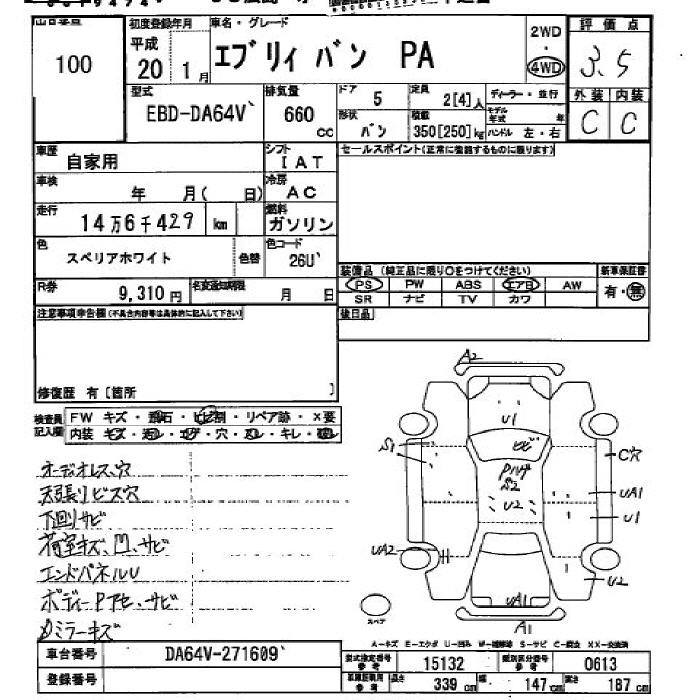 初度登録年月 車名・グレード
平成 20 1月
エブリィ バン PA
2WD
4WD
評価点
3.5
100
型式
EBD-DA64V
排気量
660 cc
ドア 5
定員 2[4]人
形状 バン
積載 350[250]kg
ディーラー・並行
モデル年式 年
ハンドル 左・右
外装 内装
C C
車歴 自家用
シフト IAT
セールスポイント(正常に機能するものに限ります)
車検 年 月( 日)
冷房 AC
走行 14万6千429 km
燃料 ガソリン
色 スペリアホワイト 色替
色コード 26U
装備品 (純正品に限り○をつけてください) 新車保証書
PS PW ABS エアB AW 有・無
SR ナビ TV カワ
R券 9,310円 名変通知期限 月 日
注意事項申告欄(不具合内容等は具体的に記入して下さい)
後日品
修復歴 有〔箇所 〕
検査員記入欄
FW キズ・飛石・ヒビ割・リペア跡・X要
内装 キズ・汚レ・コゲ・穴・スレ・キレ・
オーディオレス穴
天張リビス穴
下回リサビ
荷室キズ、凹、サビ
エンドパネルU
ボディーPアセ、サビ
ミラーキズ
A2
U1
ヒビ
S1
S2
U2
C穴
UA1
U1
UA2
U2
UA1
A1
スペア
A-キズ E-エクボ U-凹み W-補修跡 S-サビ C-腐食 XX-交換済
車台番号 DA64V-271609
登録番号
型式指定番号 15132 類別区分番号 0613
長さ 339 cm 幅 147 cm 高さ 187 cm